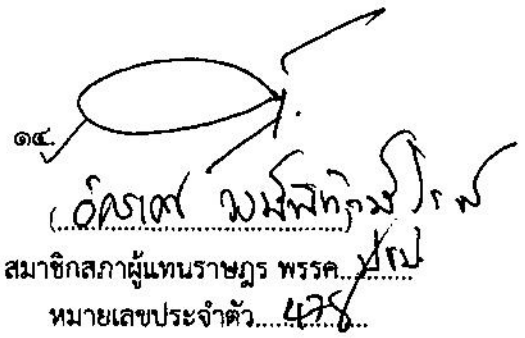 ๑๔.
(อัครเดช วงษ์พิทักษ์โรจน์)
สมาชิกสภาผู้แทนราษฎร พรรค ปชป
หมายเลขประจำตัว 478